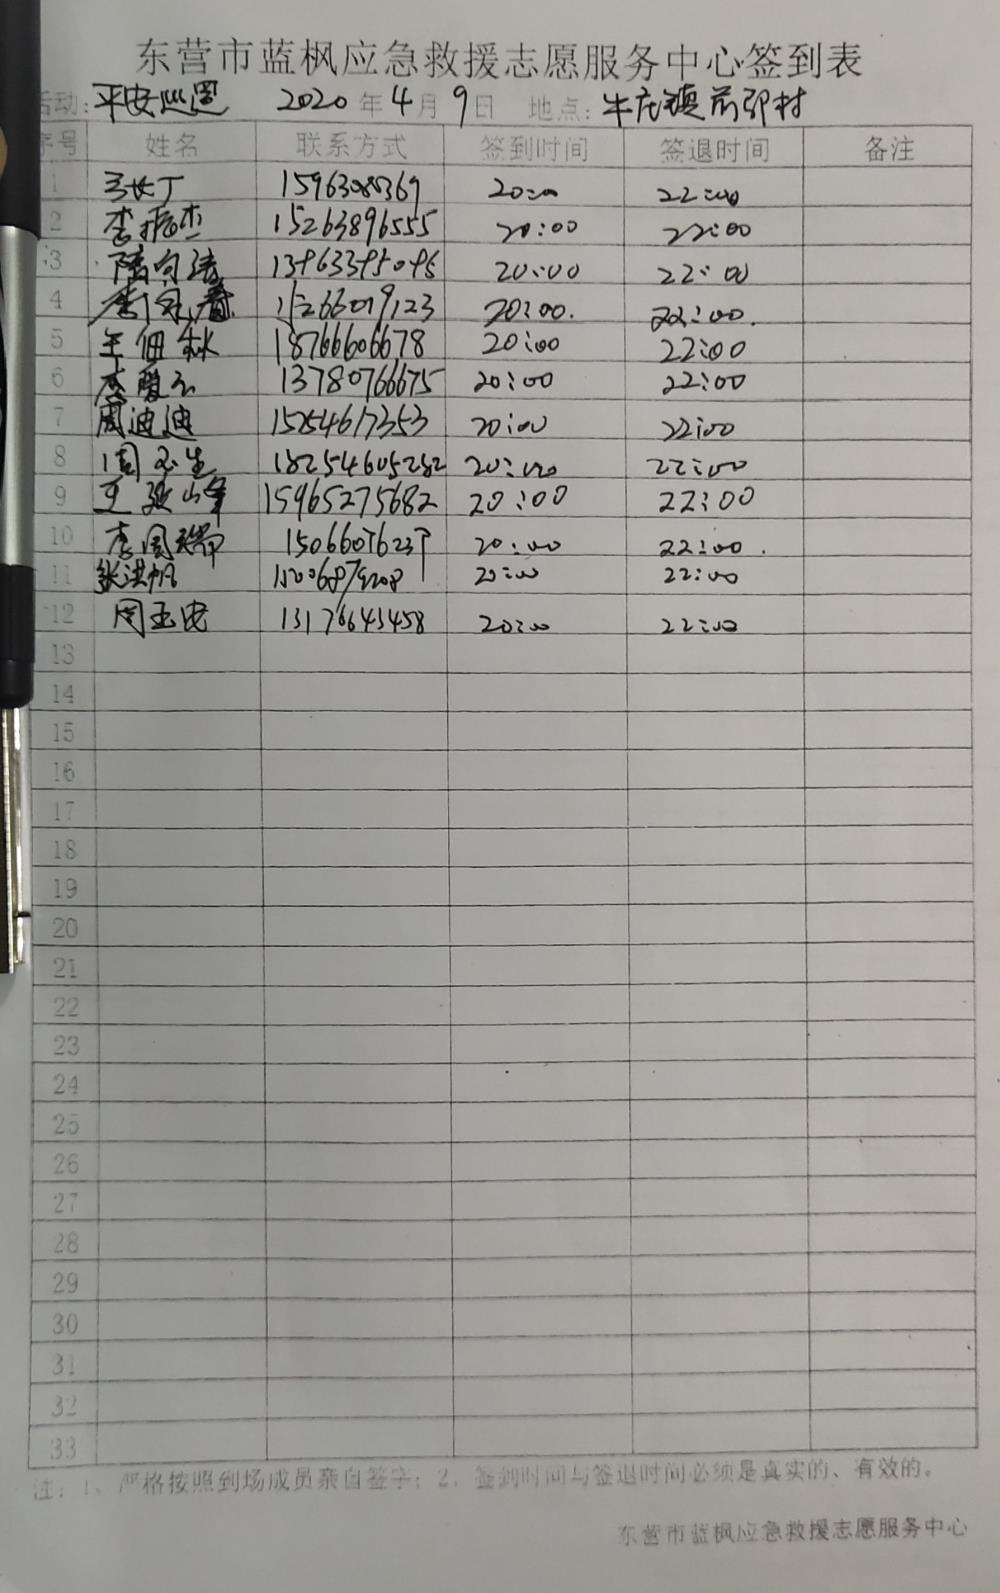 东营市蓝枫应急救援志愿服务中心签到表
活动：平安巡逻 2020年4月9日 地点：牛庄镇前邵村
序号 姓名 联系方式 签到时间 签退时间 备注
1 20:00 22:00
2 李振杰 15263896555 20:00 22:00
3 20:00 22:00
4 15266019123 20:00. 22:00.
5 王佃林 18766606678 20:00 22:00
6 李爱玉 13780766675 20:00 22:00
7 周迪迪 15254617353 20:00 22:00
8 周玉生 18254605282 20:00 22:00
9 王延峰 15965275682 20:00 22:00
10 李周瑞 20:00 22:00.
11 张洪帆 20:00 22:00
12 13176643458 20:00 22:00
13
14
15
16
17
18
19
20
21
22
23
24
25
26
27
28
29
30
31
32
33
注：1、严格按照到场成员亲自签字；2、签到时间与签退时间必须是真实的、有效的。
东营市蓝枫应急救援志愿服务中心